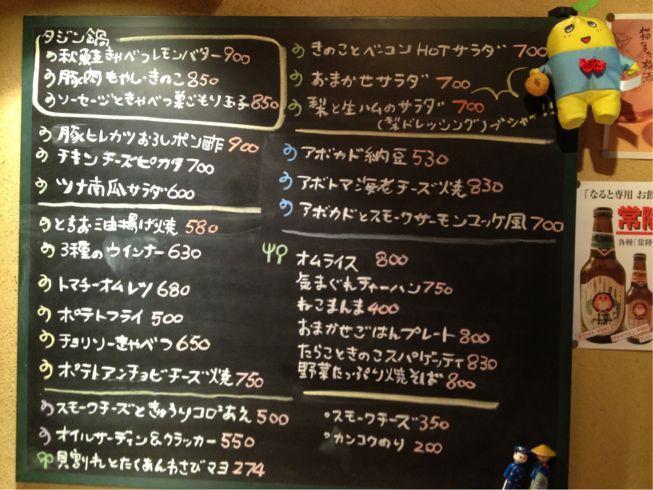 タジン鍋
秋鮭きゃべつレモンバター 900
豚肉もやし・きのこ 850
ソーセージときゃべつ巣ごもり玉子 850
豚ヒレカツおろしポン酢 900
チキンチーズピカタ 700
ツナ南瓜サラダ 600
とちお油揚げ焼 580
3種のウインナー 630
トマチーオムレツ 680
ポテトフライ 500
チョリソーきゃべつ 650
ポテトアンチョビチーズ焼 750
スモークチーズときゅうりコロコロあえ 500
オイルサーディン&クラッカー 550
貝割れとたくあんわさびマヨ 274
きのことベーコンHOTサラダ 700
おまかせサラダ 700
梨と生ハムのサラダ 700
(梨ドレッシング)ブシャー
アボカド納豆 530
アボトマ海老チーズ焼 830
アボカドとスモークサーモンユッケ風 700
オムライス 800
気まぐれチャーハン 750
ねこまんま 400
おまかせごはんプレート 800
たらこときのこスパゲッティ 830
野菜たっぷり焼そば 800
・スモークチーズ 350
・カンコクのり 200
「なると専用 お飲
常陸
各種「常陸